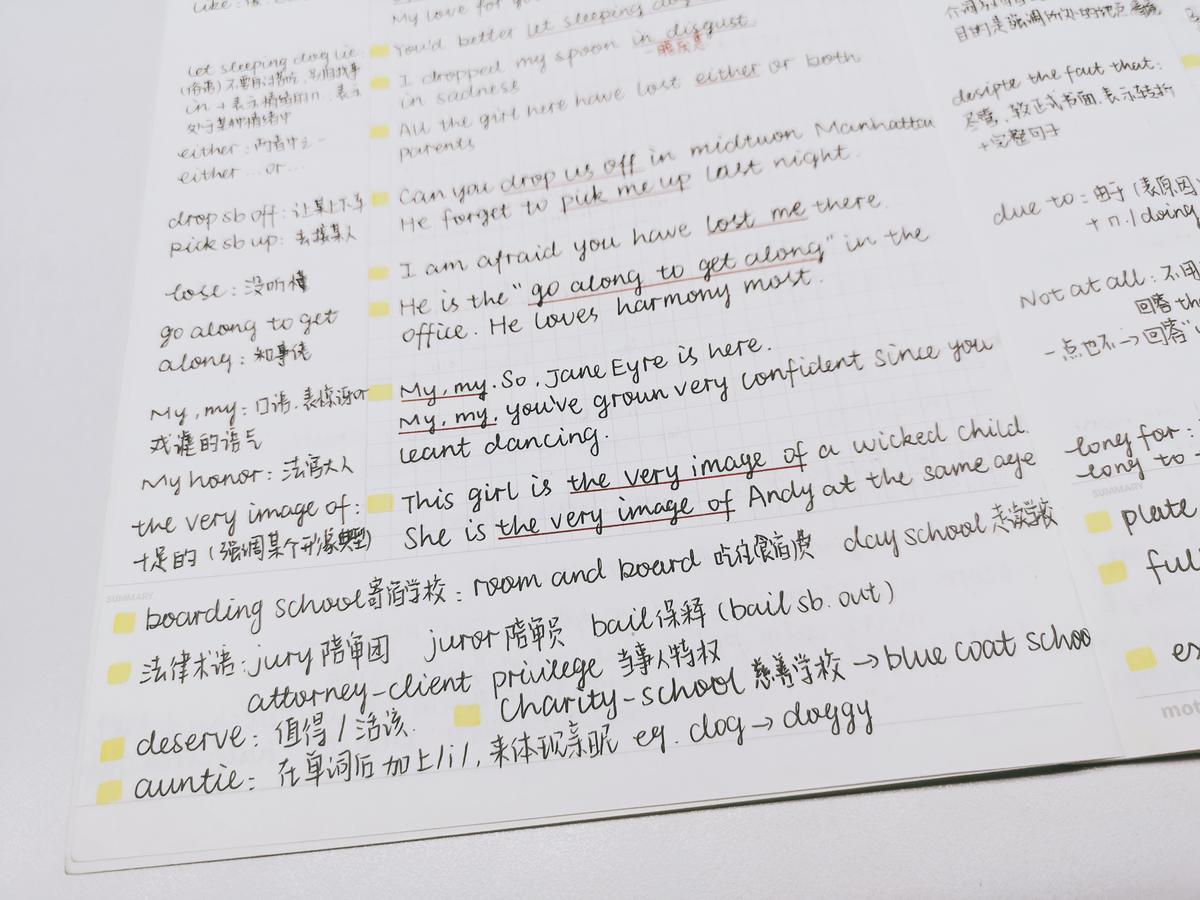 My love for
let sleeping dog lie.
You'd better let sleeping dog
in + 表示情绪的n. 表示
处于某种情绪中
I dropped my spoon in disgust
in sadness
either: 两者中之一
either ... or ...
All the girl here have lost either or both
parents
drop sb off: 让某人下车
pick sb up: 去接某人
Can you drop us off in midtwon Manhattan
He forget to pick me up last night.
lose: 没听懂
I am afraid you have lost me there.
go along to get
along: 和事佬
He is the "go along to get along" in the
office. He loves harmony most.
My, my: 口语. 表惊讶or
戏谑的语气
My honor: 法官大人
My, my. So, Jane Eyre is here.
My, my, you've groun very confident since you
leant dancing.
the very image of:
十足的 (强调某个形象典型)
This girl is the very image of a wicked child.
She is the very image of Andy at the same age
SUMMARY
boarding school寄宿学校: room and board 吃住食宿费 day school 走读学校
法律术语: jury 陪审团 juror 陪审员 bail 保释 (bail sb. out)
attorney-client privilege 当事人特权
deserve: 值得 / 活该.
Charity-school 慈善学校 → blue coat schoo
auntie: 在单词后加上/i/, 来体现亲昵 eg. dog → doggy
目的是强调所处的地点
desipte the faut that:
尽管, 较正式书面, 表示转折
+完整句子
due to: 由于 (表原因
+ n. / doing
Not at all: 不用
回答 th
一点也不 → 回答"
long for:
long to
SUMMARY
plate
ful
es
mot